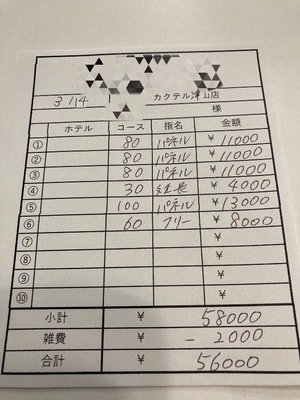 3/14 カクテル津山店
様
ホテル コース 指名 金額
① 80 パネル ¥11000
② 80 パネル ¥11000
③ 80 パネル ¥11000
④ 30 延長 ¥4000
⑤ 100 パネル ¥13000
⑥ 60 フリー ¥8000
⑦ ¥
⑧ ¥
⑨ ¥
⑩ ¥
小計 ¥ 58000
雑費 ¥ -2000
合計 ¥ 56000